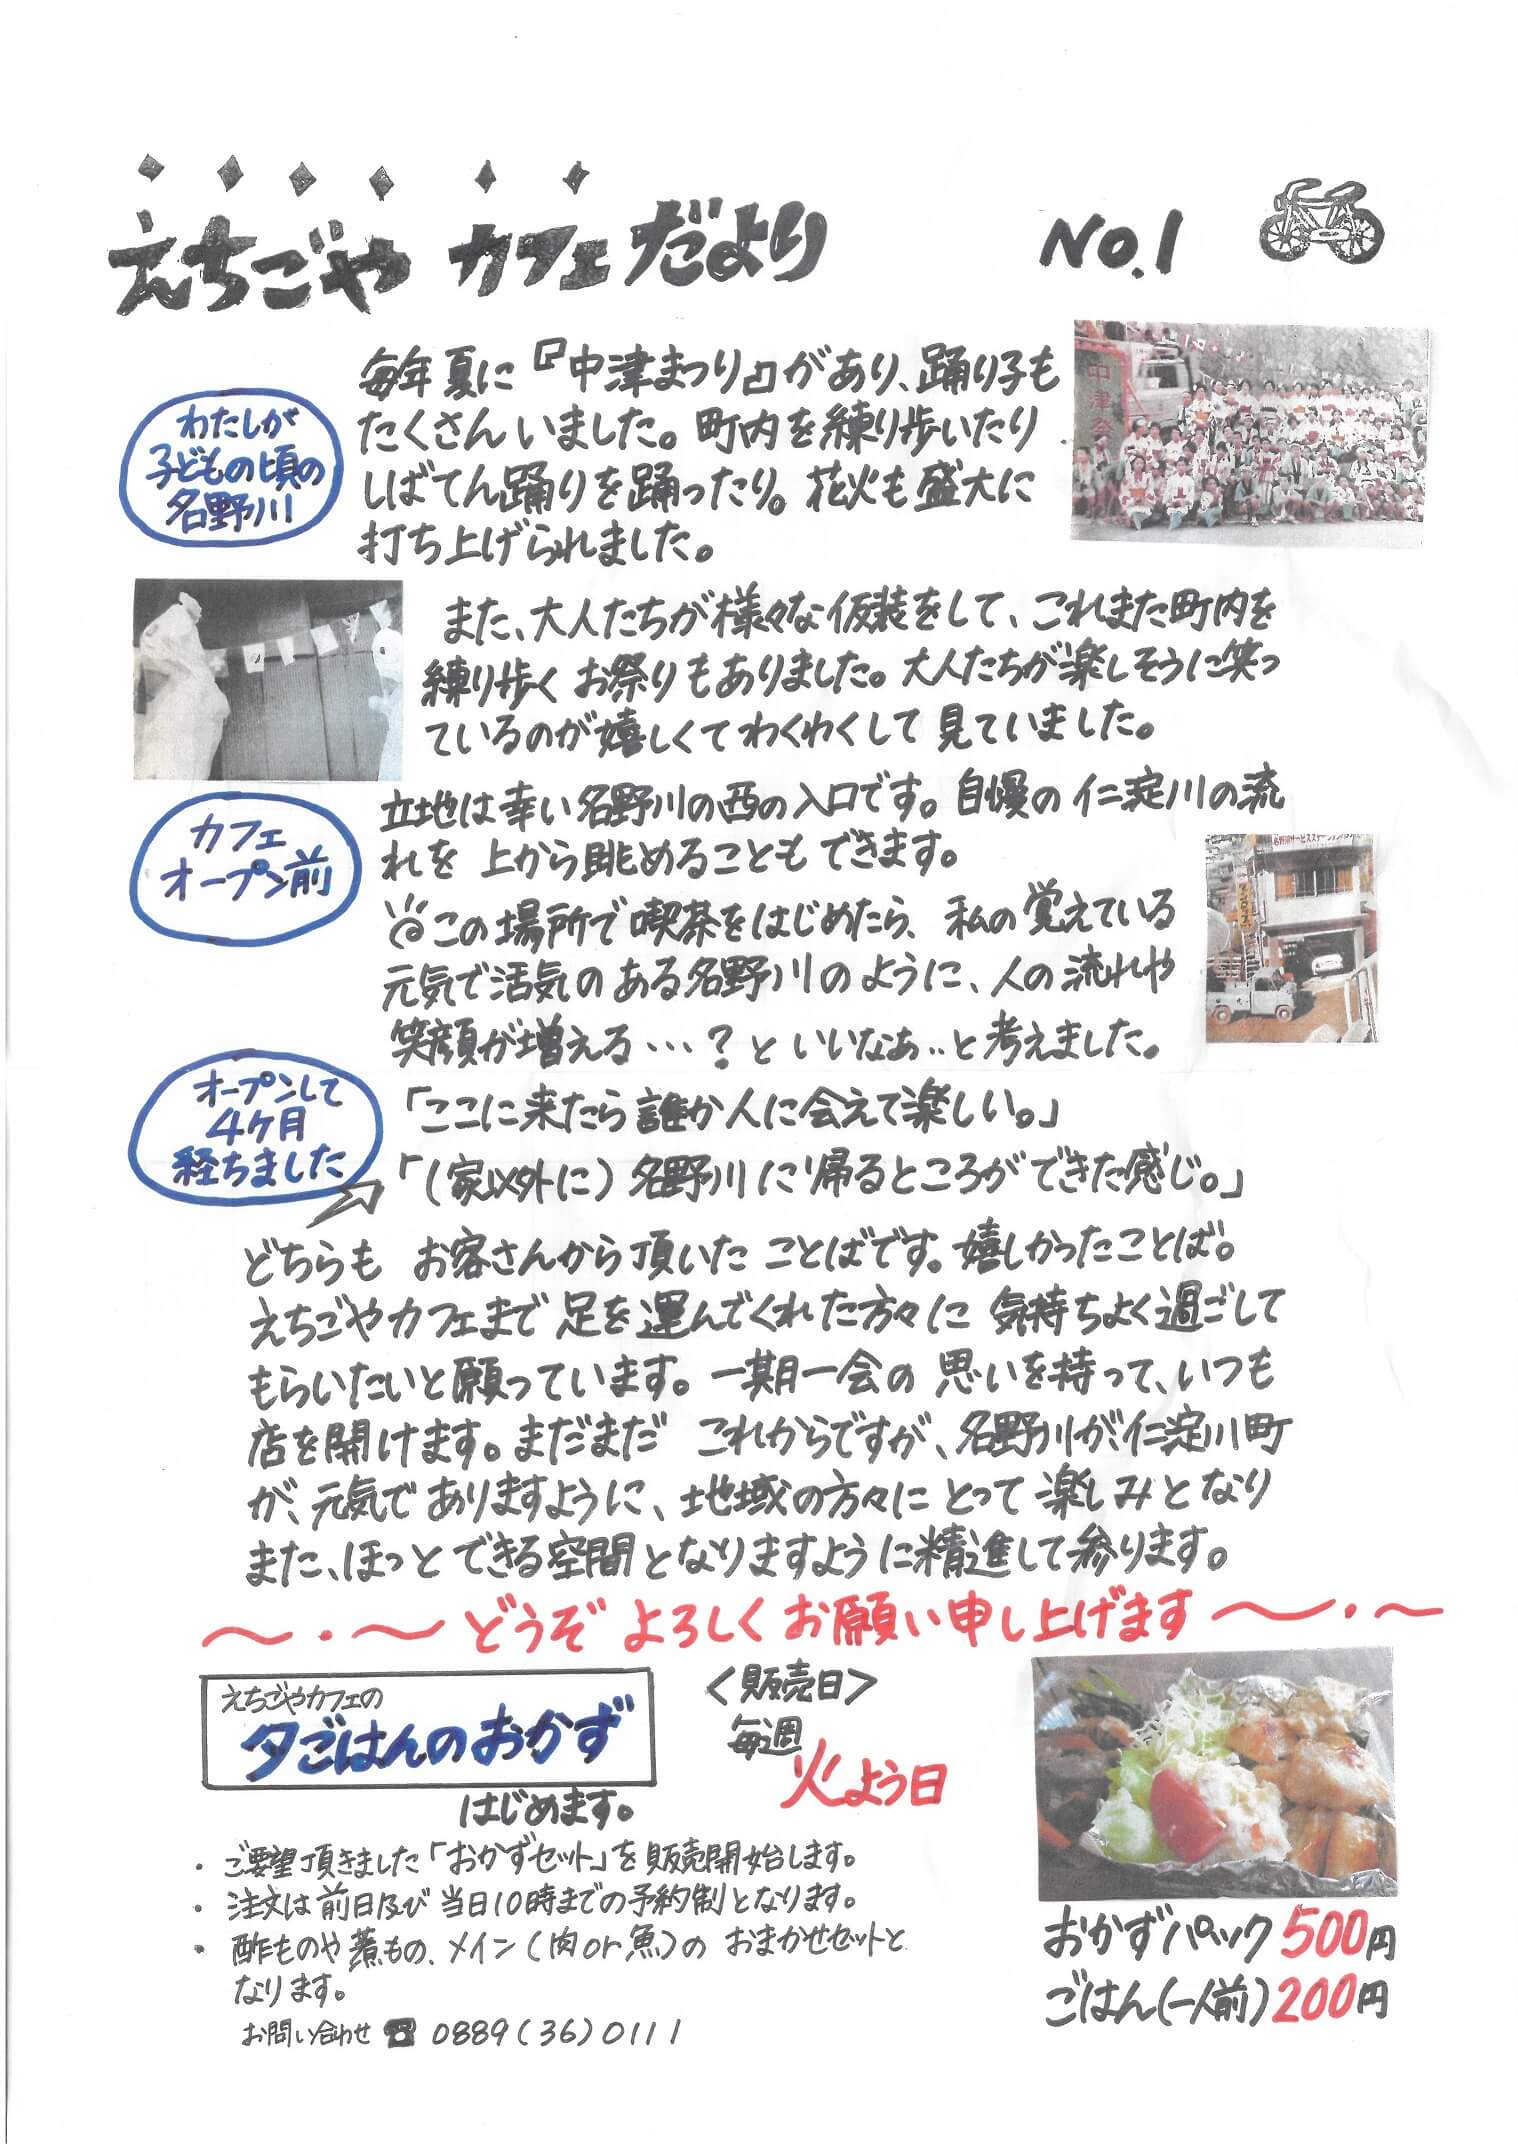 えちごや カフェだより No.1
わたしが
子どもの頃の
名野川
毎年夏に『中津まつり』があり、踊り子も
たくさんいました。町内を練り歩いたり
しばてん踊りを踊ったり。花火も盛大に
打ち上げられました。
中津祭
また、大人たちが様々な仮装をして、これまた町内を
練り歩くお祭りもありました。大人たちが楽しそうに笑っ
ているのが嬉しくてわくわくして見ていました。
カフェ
オープン前
立地は幸い名野川の西の入口です。自慢の仁淀川の流
れを上から眺めることもできます。
この場所で喫茶をはじめたら、私の覚えている
元気で活気のある名野川のように、人の流れや
笑顔が増える…?といいなあ‥と考えました。
オープンして
4ヶ月
経ちました
「ここに来たら誰か人に会えて楽しい。」
「(家以外に)名野川に帰るところができた感じ。」
どちらも お客さんから頂いた ことばです。嬉しかったことば。
えちごやカフェまで足を運んでくれた方々に 気持ちよく過ごして
もらいたいと願っています。一期一会の思いを持って、いつも
店を開けます。まだまだ これからですが、名野川が、仁淀川町
が、元気でありますように、地域の方々にとって楽しみとなり
また、ほっとできる空間となりますように精進して参ります。
〜・〜どうぞ よろしく お願い申し上げます〜・〜
えちごやカフェの
夕ごはんのおかず
はじめます。
<販売日>
毎週
火よう日
・ご要望頂きました「おかずセット」を販売開始します。
・注文は前日及び当日10時までの予約制となります。
・酢ものや煮もの、メイン(肉or魚)の おまかせセットと
なります。
お問い合わせ ☎ 0889(36)0111
おかずパック 500円
ごはん(一人前)200円